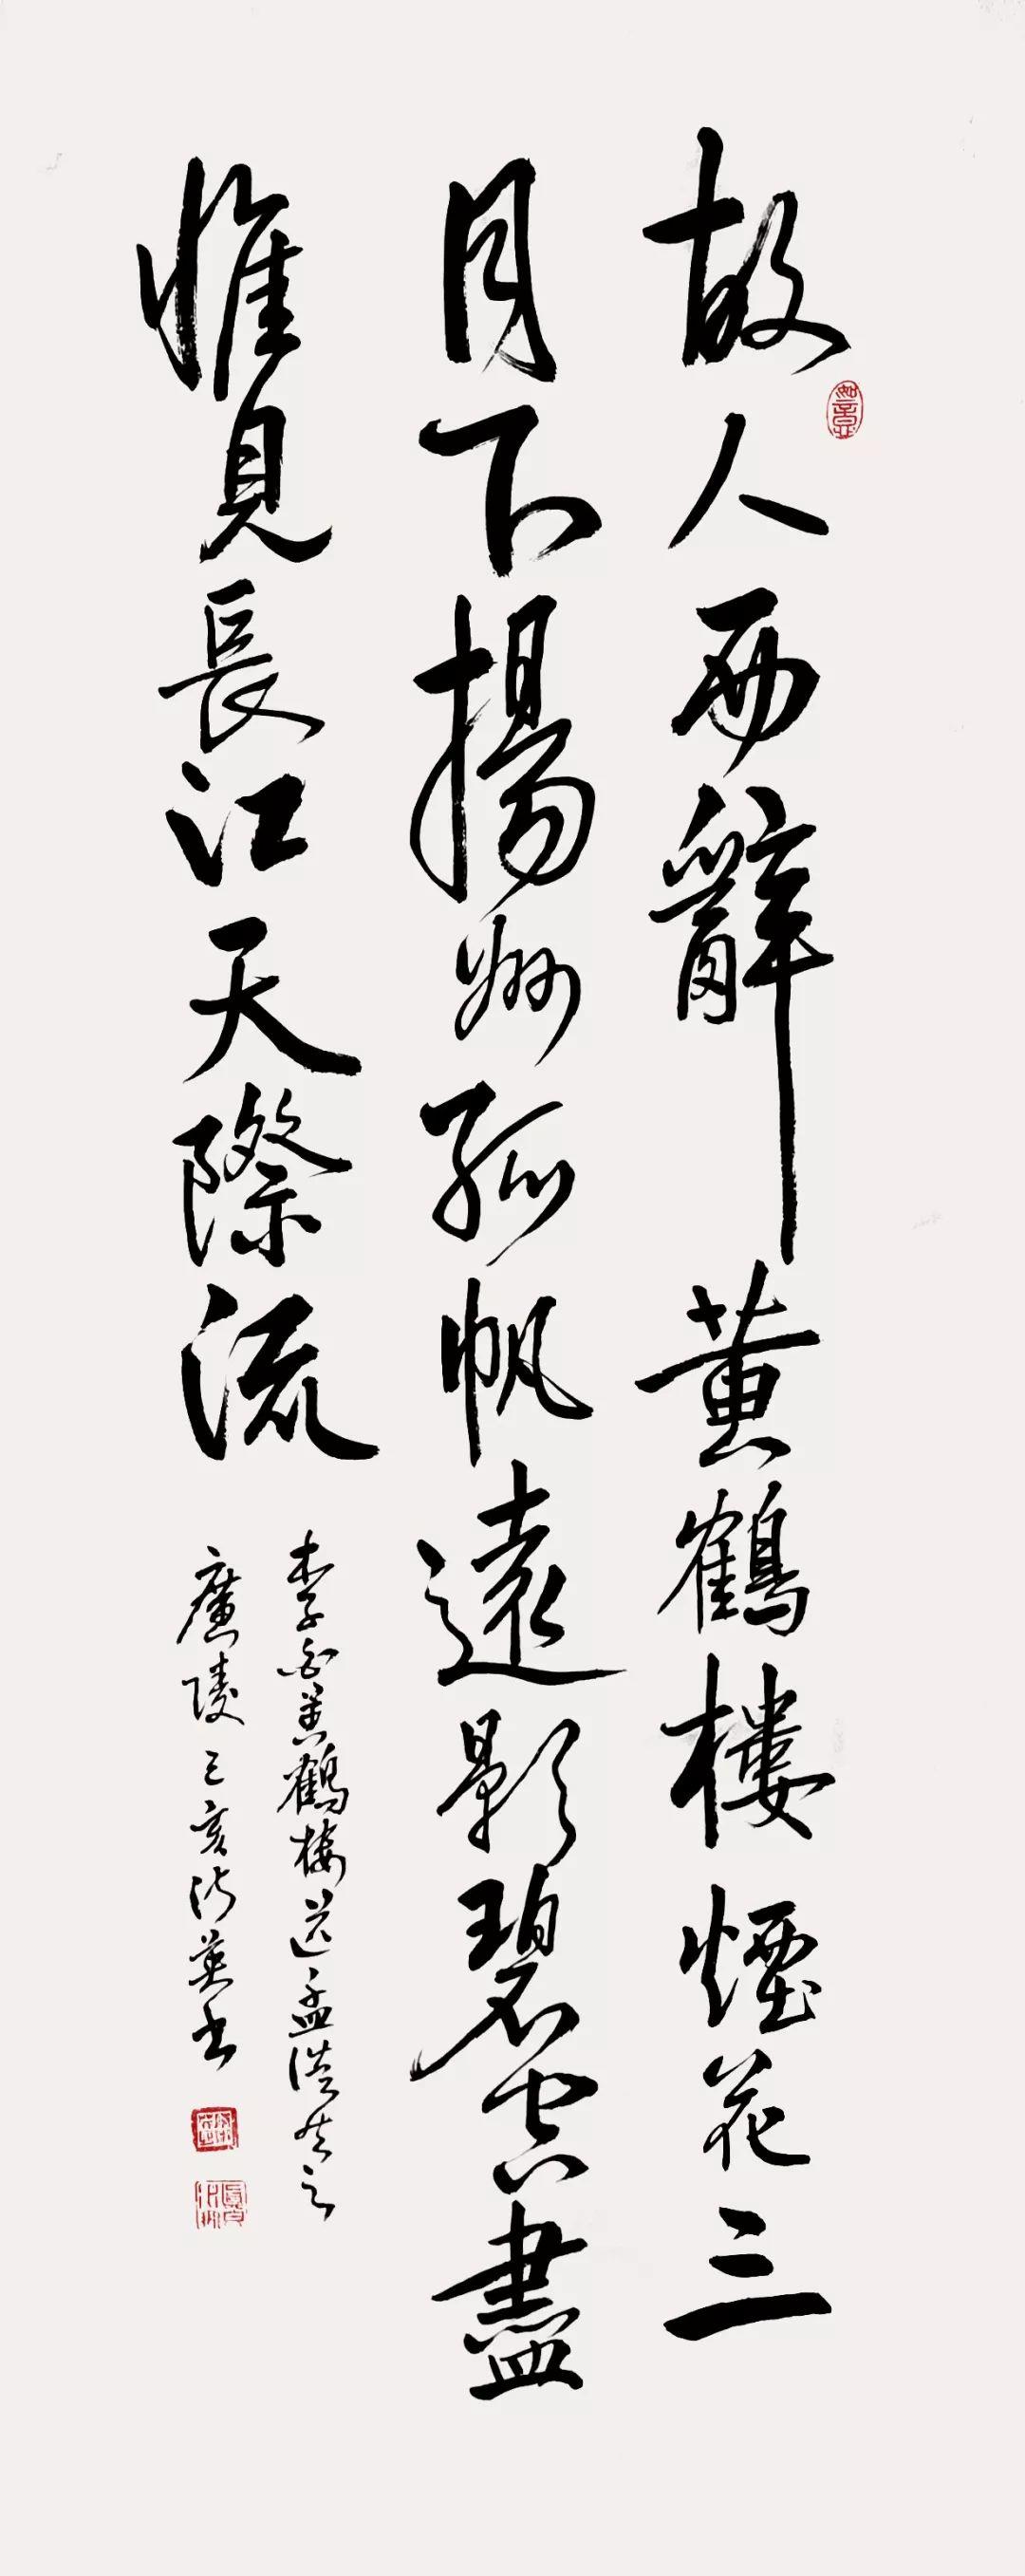 故人西辭黄鶴樓煙花三
月下揚州孤帆遠影碧空盡
惟見長江天際流
李白黄鶴樓送孟浩然之
廣陵己亥沂英书
如意